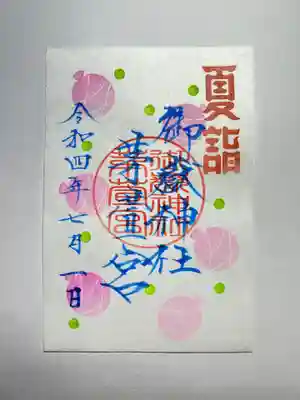 夏詣
御嶽神社
茅萱宮
令和四年七月一日